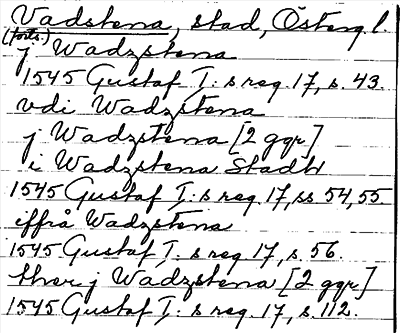 Vadstena, stad, Östergl.
(forts.)
j Wadzstena
1545 Gustaf I:s reg. 17, s. 43.
vdi Wadzstena
j Wadzstena [2 ggr]
i Wadzstena Stadh
1545 Gustaf I:s reg. 17, ss 54, 55.
iffrå Wadzstena
1545 Gustaf I:s reg. 17, s. 56.
ther j Wadzstena [2 ggr]
1545 Gustaf I:s reg. 17, s. 112.